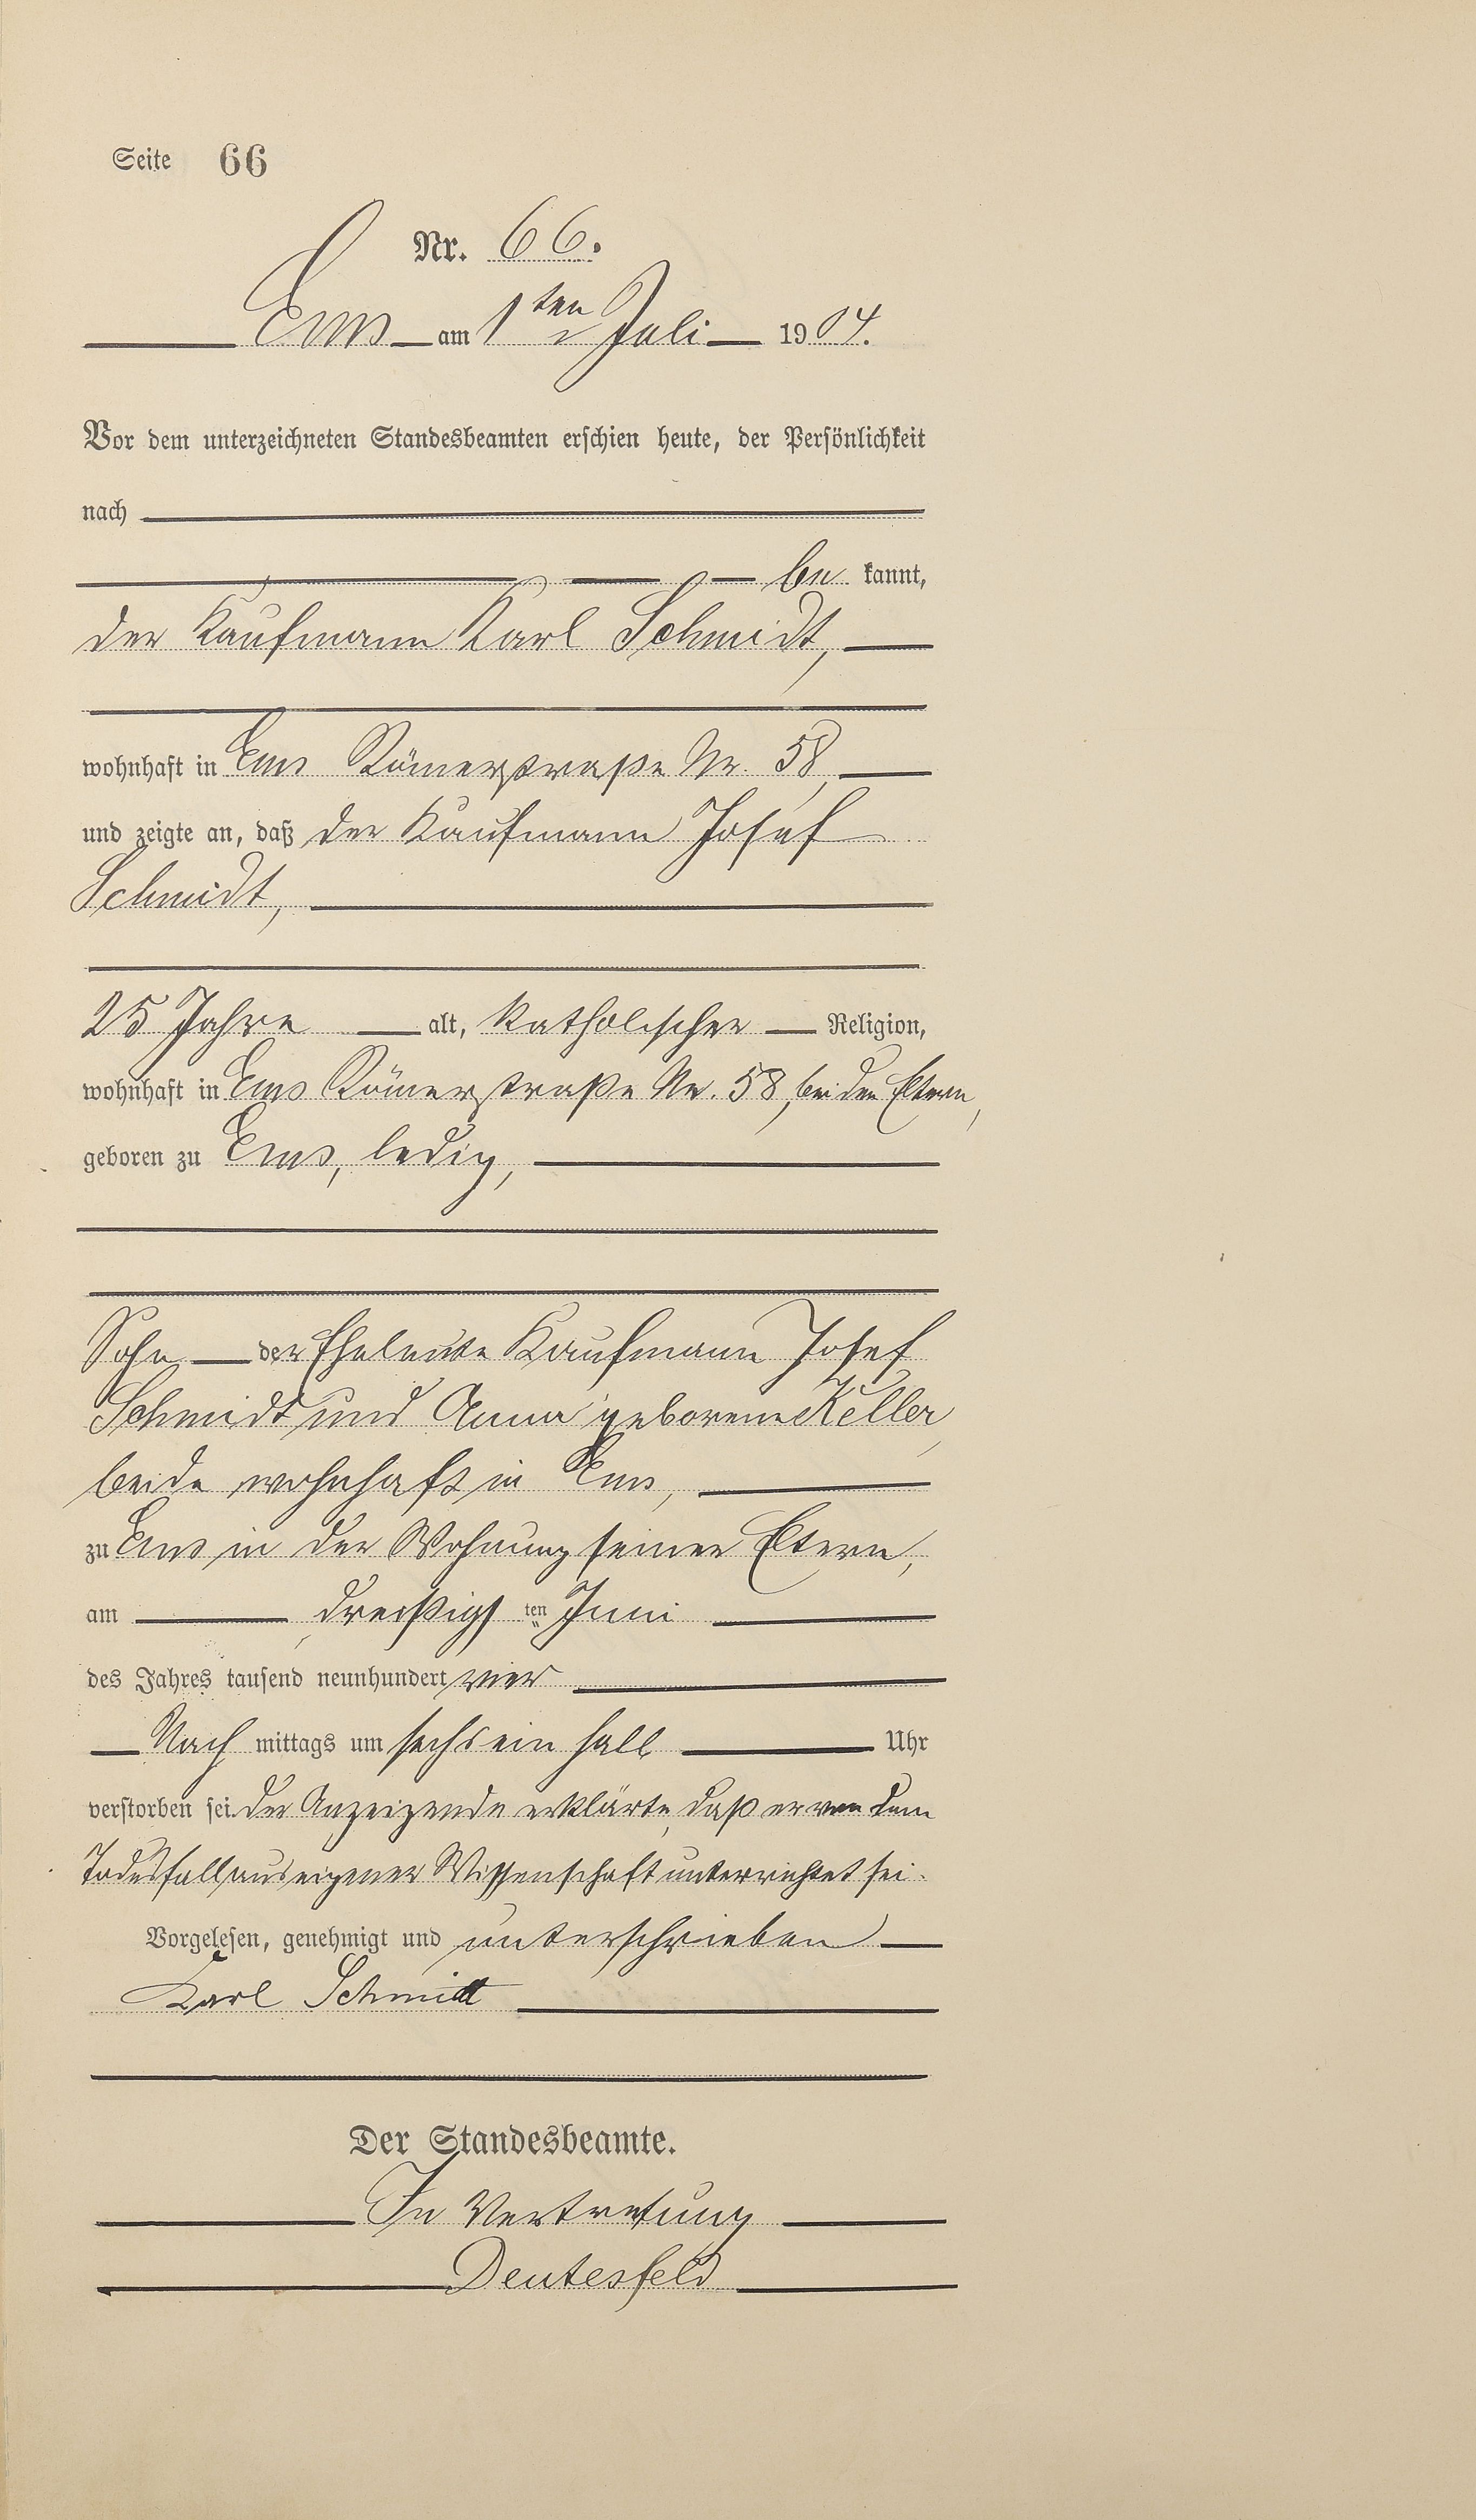 Seite 66
Nr. 66.
Ems am 1ten Juli 1904.
Vor dem unterzeichneten Standesbeamten erschien heute, der Persönlichkeit
nach
be kannt,
der Kaufmann Karl Schmidt,
wohnhaft in Ems Römerstraße Nr. 58,
und zeigte an, daß der Kaufmann Josef
Schmidt,
25 Jahre alt, katholischer Religion,
wohnhaft in Ems Römerstraße Nr. 58, bei den Eltern,
geboren zu Ems, ledig,
Sohn der Eheleute Kaufmann Josef
Schmidt und Anna geborene Keller,
beide wohnhaft in Ems,
zu Ems in der Wohnung seiner Eltern,
am dreißigs ten Juni
des Jahres tausend neunhundert vier
Nach mittags um sechs ein halb Uhr
verstorben sei. Der Anzeigende erklärte, daß er von dem
Todesfall aus eigener Wissenschaft unterrichtet sei.
Vorgelesen, genehmigt und unterschrieben
Karl Schmidt
Der Standesbeamte.
In Vertretung
Deutesfeld